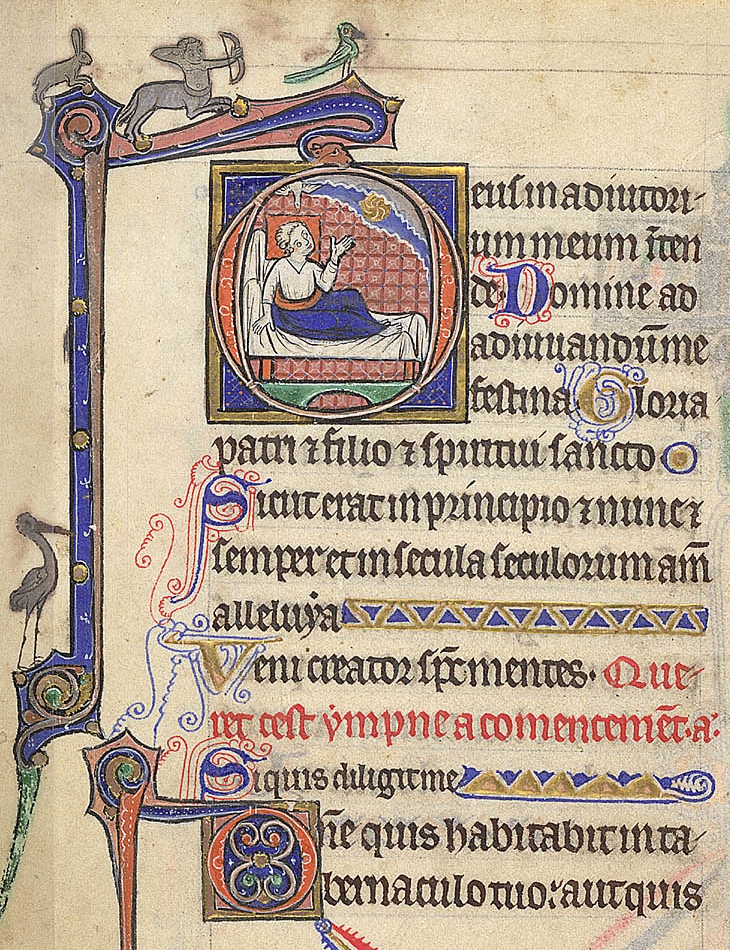 Deus in adiutori-
um meum īten
de Domine ad
adiuuandūme
festina Gloria
patri ⁊ filio ⁊ spiritui sancto
Sicut erat in principio ⁊ nunc ⁊
semper et in secula seculorum am̄
alleluẏa
Veni creator sp̄c mentes. Que-
ret cest ẏmpne a comencemēt.a.
Siquis diligit me
D̄ne quis habitabit in ta-
bernaculo tuo: aut quis